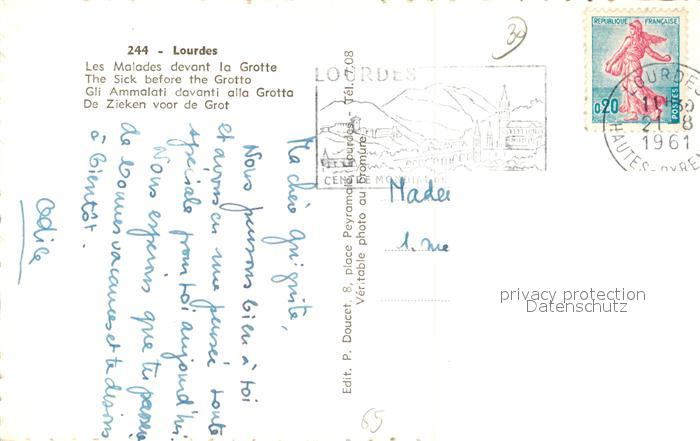 244 - Lourdes
Les Malades devant la Grotte
The Sick before the Grotto
Gli Ammalati davanti alla Grotta
De Zieken voor de Grot
Ma chère
Nous pensons bien à toi
et avons eu une pensée toute
spéciale pour toi aujourd'hui
Nous espérons que tu passes
de bonnes vacances et te disons
à bientôt.
Odile
Edit. P. Doucet, 8, place Peyramale, Lourdes - Tél. 2.08
Véritable photo au bromure
30
LOURDES
CENTRE MONDIAL
REPUBLIQUE FRANÇAISE
0,20
POSTES
LOURDES
21 8
1961
HAUTES-PYRE
privacy protection
Datenschutz
65